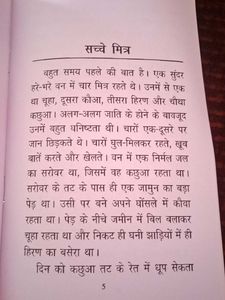 सच्चे मित्र
बहुत समय पहले की बात है। एक सुंदर
हरे-भरे वन में चार मित्र रहते थे। उनमें से एक
था चूहा, दूसरा कौआ, तीसरा हिरण और चौथा
कछुआ। अलग-अलग जाति के होने के बावजूद
उनमें बहुत घनिष्टता थी। चारों एक-दूसरे पर
जान छिड़कते थे। चारों घुल-मिलकर रहते, खूब
बातें करते और खेलते। वन में एक निर्मल जल
का सरोवर था, जिसमें वह कछुआ रहता था।
सरोवर के तट के पास ही एक जामुन का बड़ा
पेड़ था। उसी पर बने अपने घोंसले में कौवा
रहता था। पेड़ के नीचे जमीन में बिल बनाकर
चूहा रहता था और निकट ही घनी झाड़ियों में ही
हिरण का बसेरा था।
दिन को कछुआ तट के रेत में धूप सेकता
5